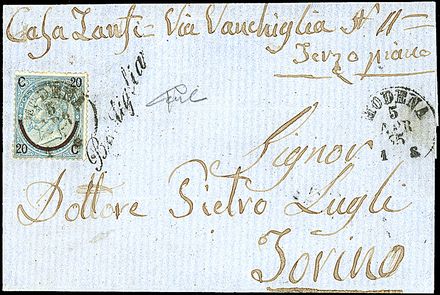 Casa Zanfi - Via Vanchiglia N 11 -
Terzo piano
C 20
20 C
Bastiglia
MODENA
5
APR
65
1 S
Signor
Dottore Pietro Lugli
Torino